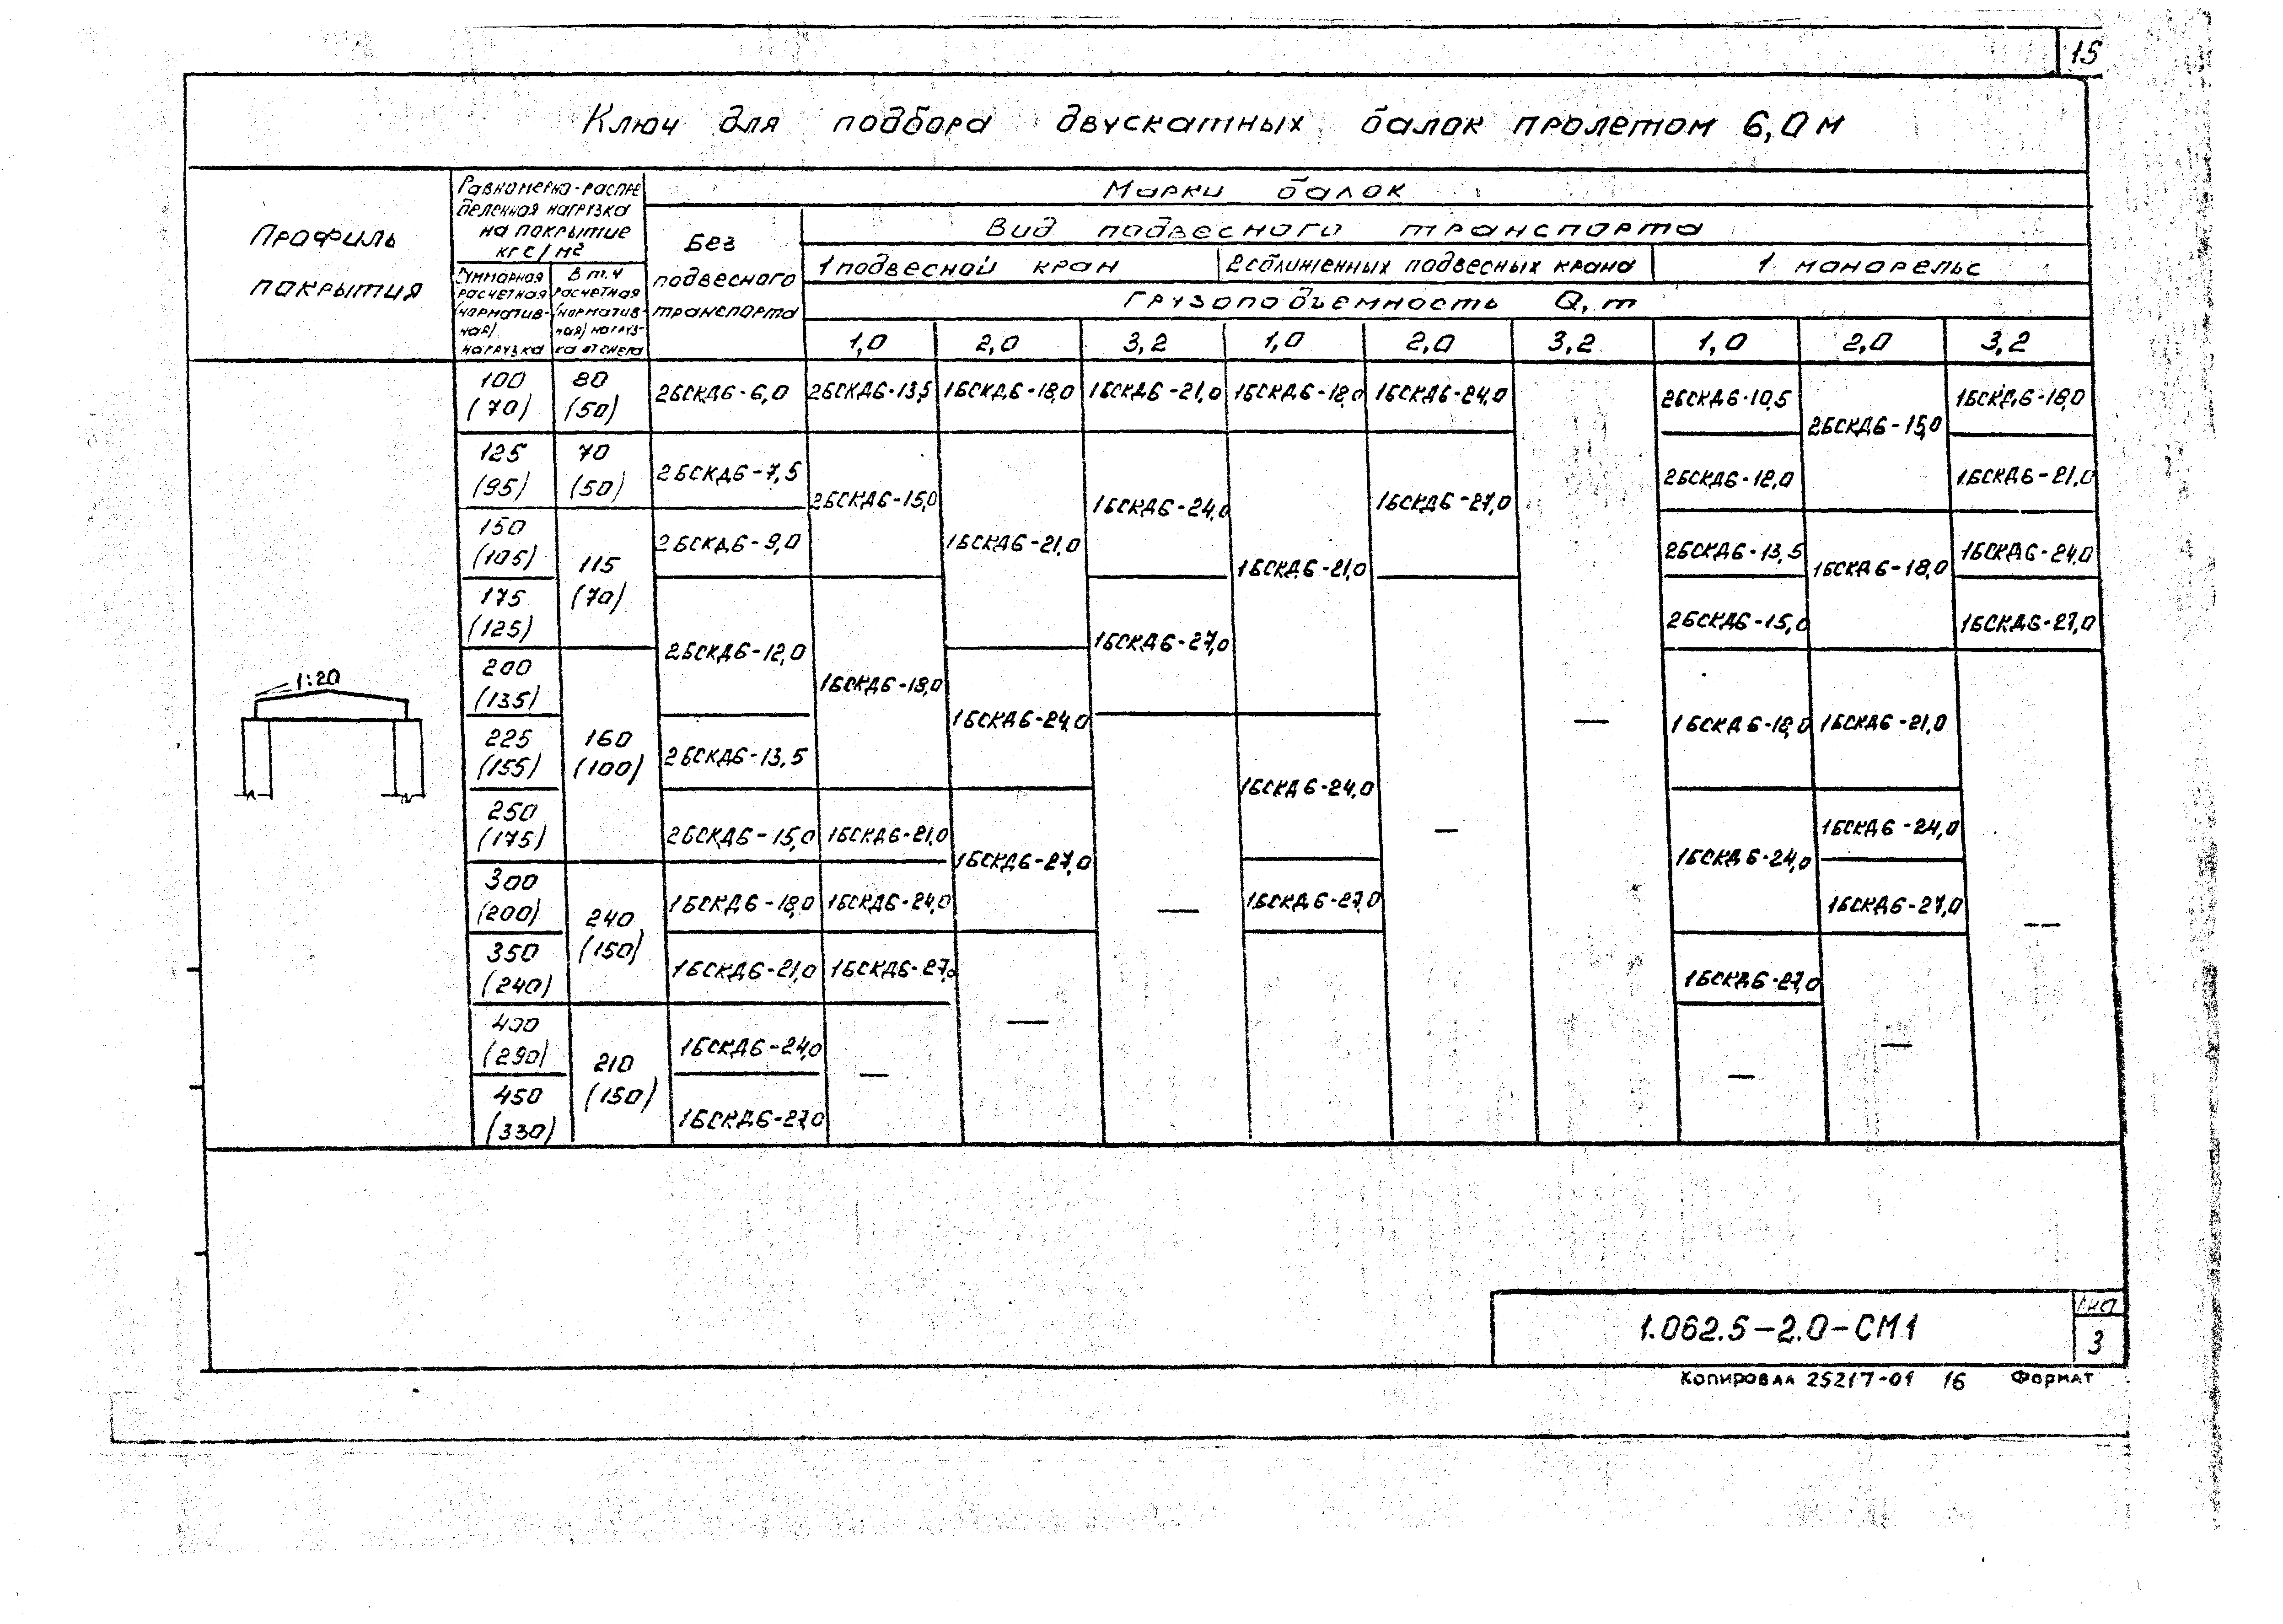 15
Ключ для подбора двускатных балок пролетом 6,0 м
Профиль покрытия
Равномерно-распределенная нагрузка на покрытие кгс/м2
Суммарная расчетная (нормативная) нагрузка
В т.ч расчетная (нормативная) нагрузка от снега
Марки балок
Без подвесного транспорта
Вид подвесного транспорта
1 подвесной кран
2 сближенных подвесных крана
1 монорельс
Грузоподъемность Q, т
1,0 2,0 3,2 1,0 2,0 3,2 1,0 2,0 3,2
100 (70) 80 (50) 2БСКД6-6,0 2БСКД6-13,5 1БСКД6-18,0 1БСКД6-21,0 1БСКД6-18,0 1БСКД6-24,0 2БСКД6-10,5 2БСКД6-15,0 1БСКД6-18,0
125 (95) 70 (50) 2БСКД6-7,5 2БСКД6-15,0 1БСКД6-24,0 1БСКД6-27,0 2БСКД6-12,0 1БСКД6-21,0
150 (105) 115 (70) 2БСКД6-9,0 1БСКД6-21,0 1БСКД6-21,0 2БСКД6-13,5 1БСКД6-18,0 1БСКД6-24,0
175 (125) 2БСКД6-12,0 1БСКД6-27,0 2БСКД6-15,0 1БСКД6-27,0
1:20
200 (135) 1БСКД6-18,0 1БСКД6-24,0 — 1БСКД6-18,0 1БСКД6-21,0
225 (155) 160 (100) 2БСКД6-13,5 1БСКД6-24,0
250 (175) 2БСКД6-15,0 1БСКД6-21,0 1БСКД6-27,0 — 1БСКД6-24,0 1БСКД6-24,0
300 (200) 240 (150) 1БСКД6-18,0 1БСКД6-24,0 — 1БСКД6-27,0 1БСКД6-27,0 —
350 (240) 1БСКД6-21,0 1БСКД6-27,0 1БСКД6-27,0
400 (290) 210 (150) 1БСКД6-24,0 — — — —
450 (330) 1БСКД6-27,0
1.062.5-2.0-СМ1
Лист
3
Копировал 25217-01 16 Формат